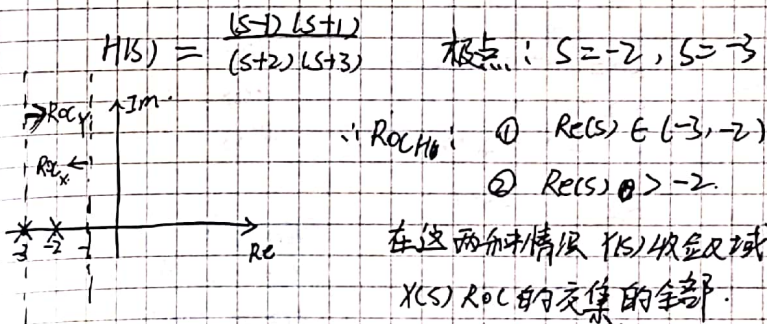 H(s) = (s-1)(s+1) / (s+2)(s+3) 极点: s=-2, s=-3
→ROC_Y Im
∴ ROC_H: ① Re(s) ∈ (-3,-2)
ROC_X ←
② Re(s) > -2.
-3 -2 -1 Re
在这两种情况 Y(s)收敛域
X(s) ROC 的交集的全部.